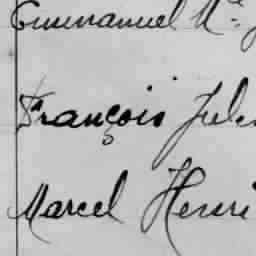 Emmanuel Mie
François Jules
Marcel Henri